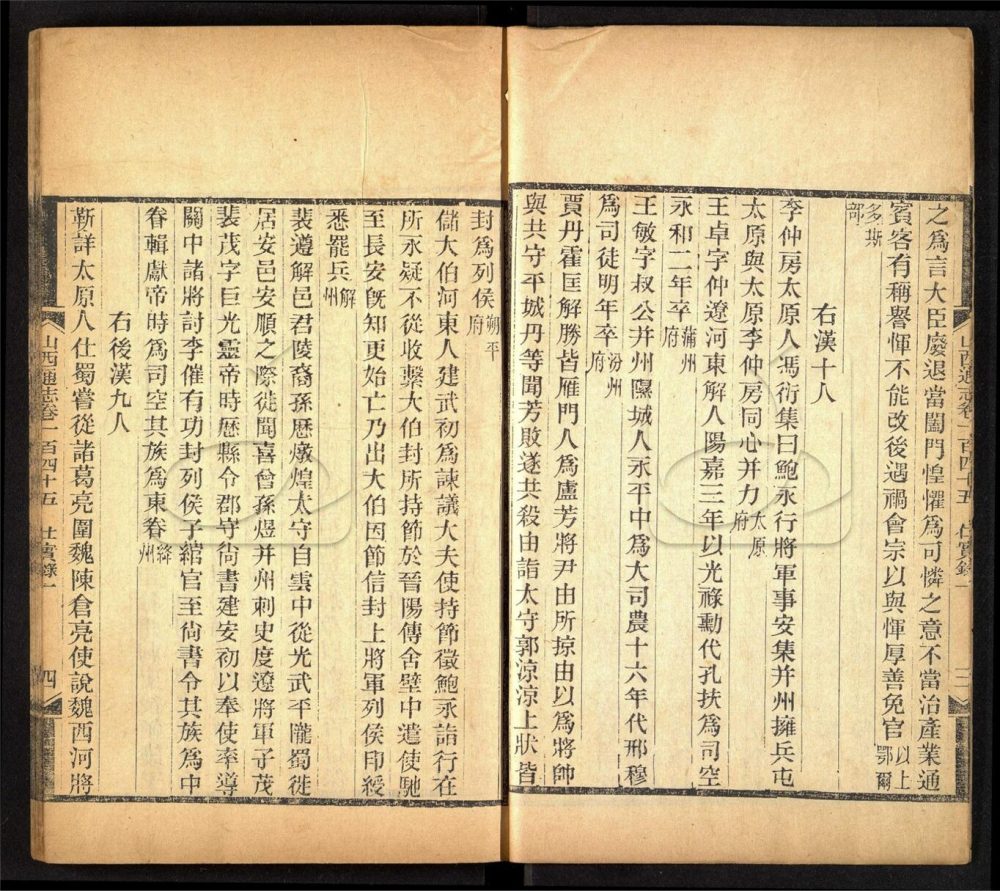 之爲言大臣廢退當闔門惶懼爲可憐之意不當治產業通
賓客有稱譽惲不能改後遇禍會宗以與惲厚善免官以上鄂爾
多斯部
右漢十人
李仲房太原人馮衍集曰鮑永行將軍事安集并州擁兵屯
太原與太原李仲房同心并力太原府
王卓字仲遼河東解人陽嘉三年以光祿勳代孔扶爲司空
永和二年卒蒲州府
王敏字叔公并州隰城人永平中爲大司農十六年代邢穆
爲司徒明年卒汾州府
賈丹霍匡解勝皆雁門人爲盧芳將尹由所掠由以爲將帥
與共守平城丹等聞芳敗遂共殺由詣太守郭涼涼上狀皆
封爲列侯朔平府
儲大伯河東人建武初爲諫議大夫使持節徵鮑永詣行在
所永疑不從收繫大伯封所持節於晉陽傳舍壁中遣使馳
至長安旣知更始亡乃出大伯因節信封上將軍列侯印綬
悉罷兵解州
裴遵解邑君陵裔孫歷燉煌太守自雲中從光武平隴蜀徙
居安邑安順之際徙聞喜曾孫煜并州刺史度遼將軍子茂
裴茂字巨光靈帝時歷縣令郡守尙書建安初以奉使率導
關中諸將討李傕有功封列侯子綰官至尙書令其族爲中
眷輯獻帝時爲司空其族爲東眷絳州
右後漢九人
靳詳太原人仕蜀嘗從諸葛亮圍魏陳倉亮使說魏西河將
山西通志卷一百四十五 仕實錄一 四